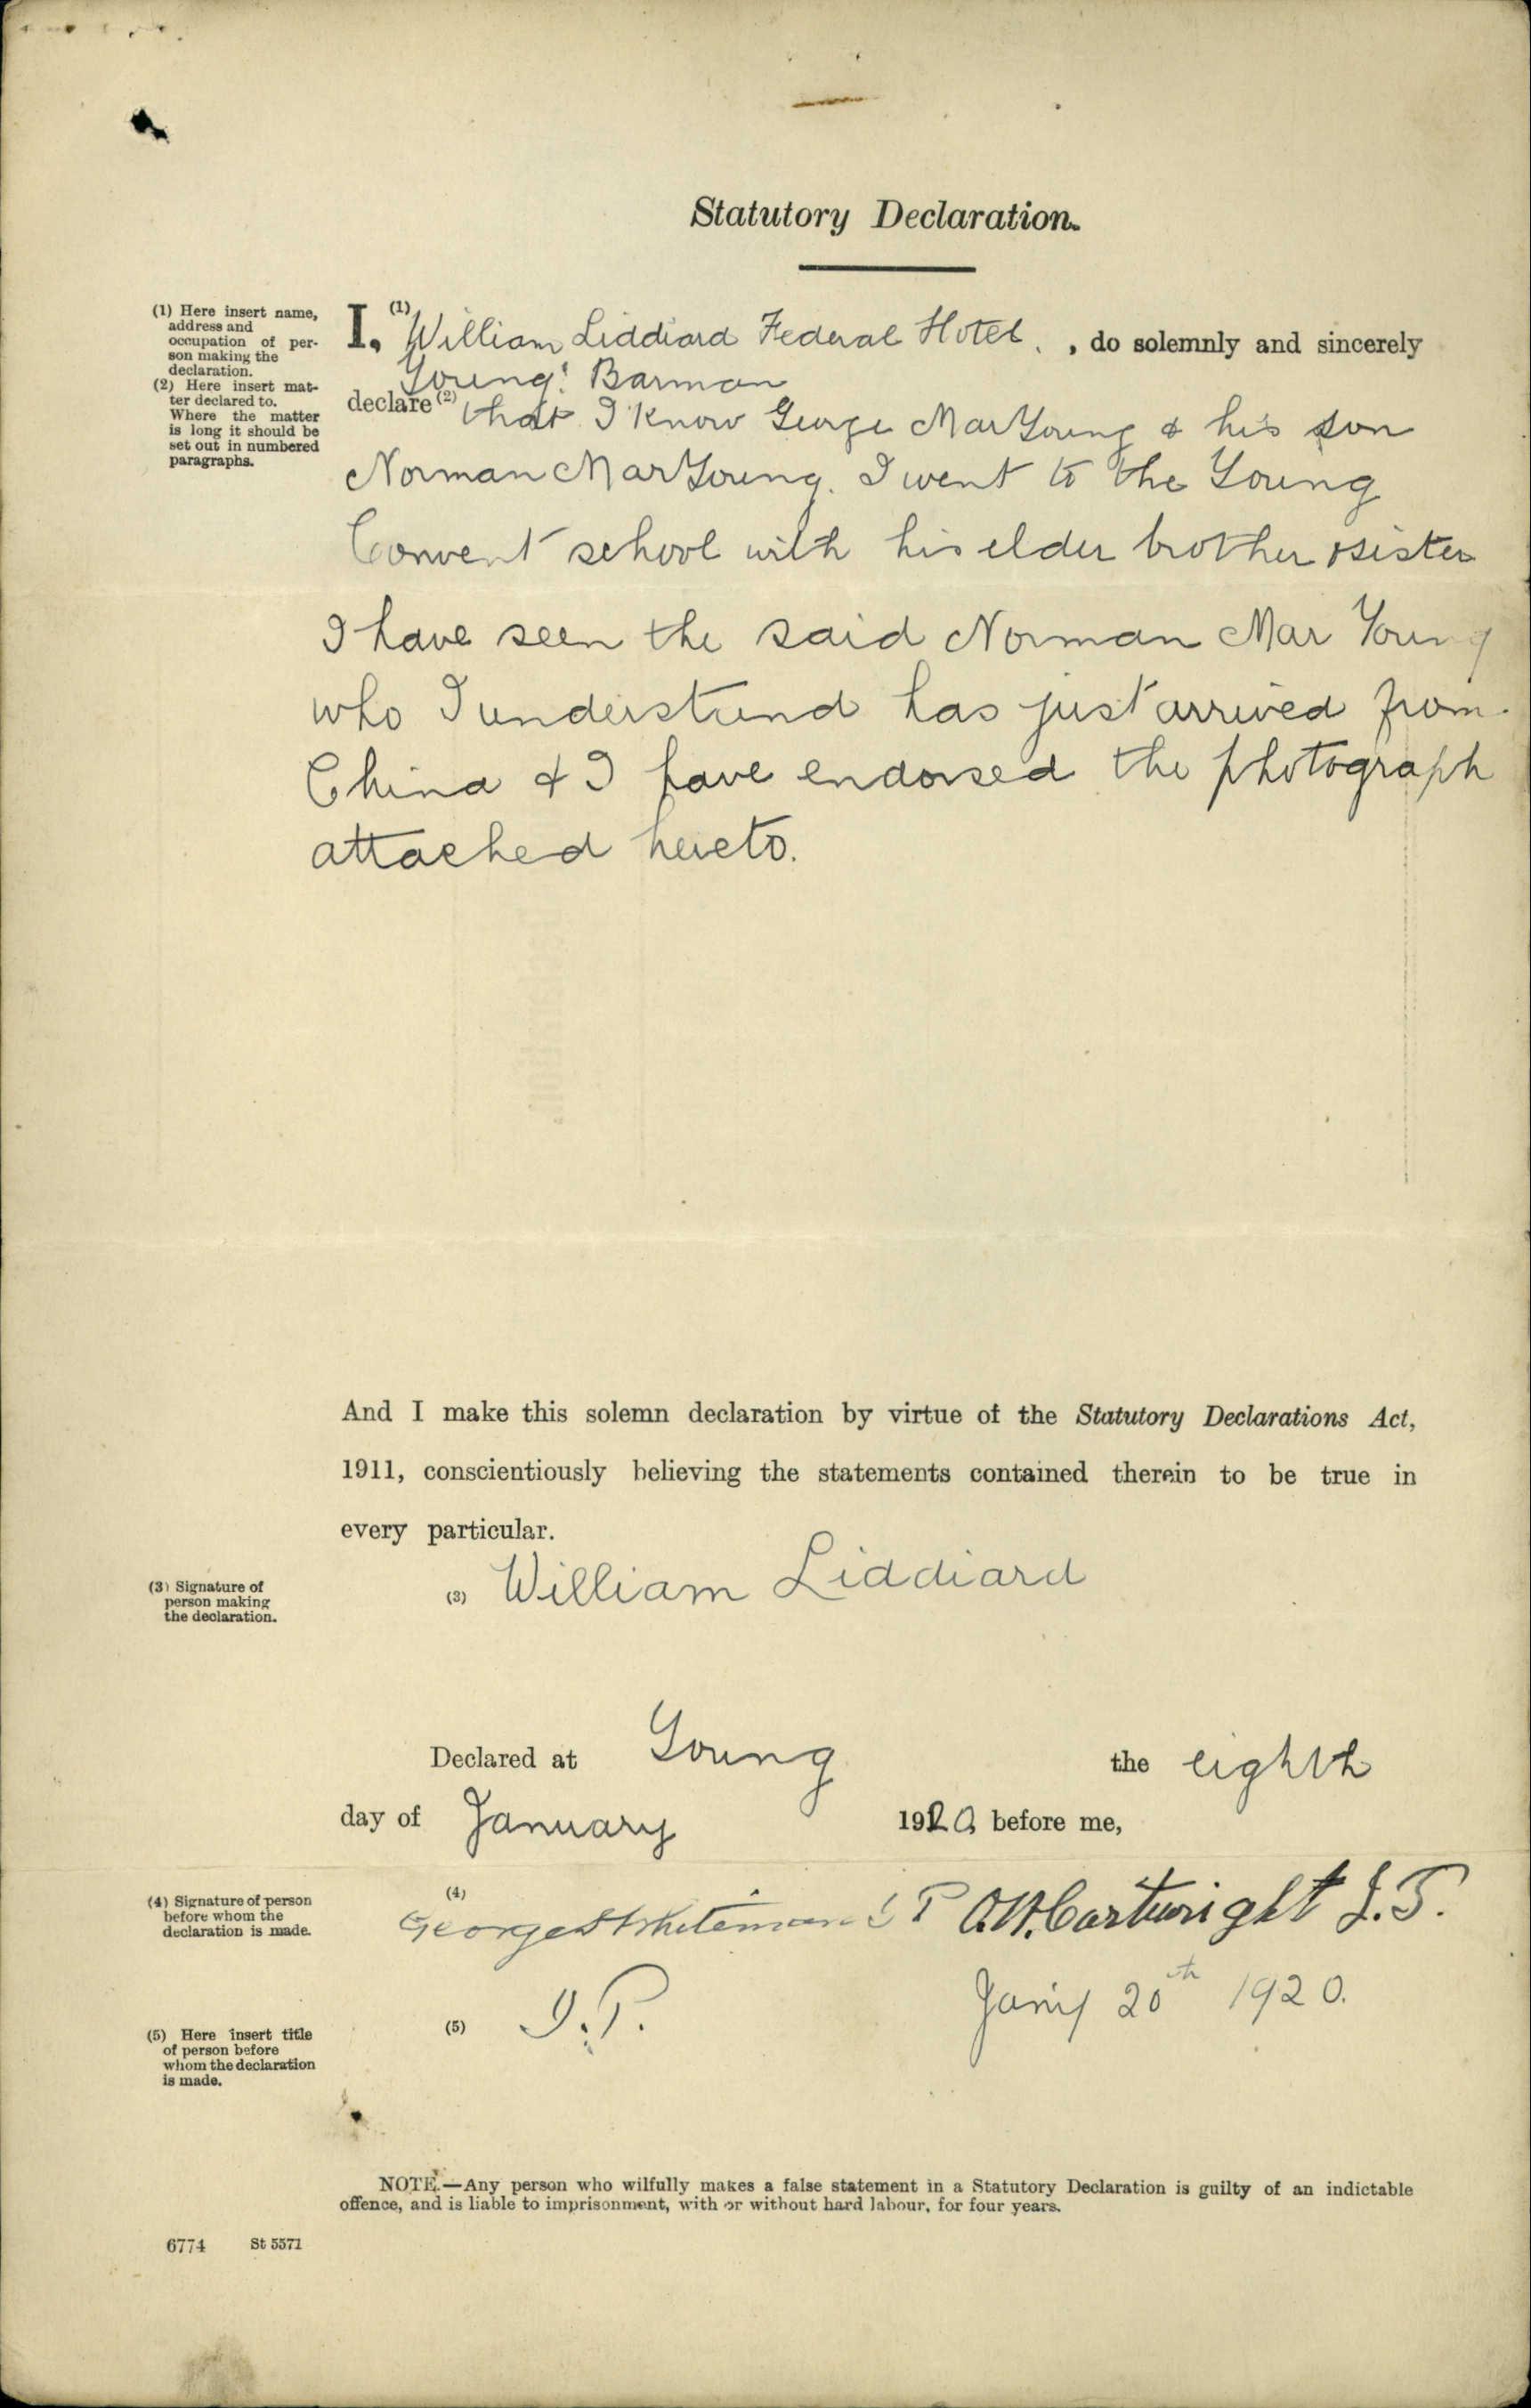 Statutory Declaration.
(1) Here insert name,
address and
occupation of per-
son making the
declaration.
(2) Here insert mat-
ter declared to.
Where the matter
is long it should be
set out in numbered
paragraphs.
I, (1) William Liddiard Federal Hotel, , do solemnly and sincerely
Young. Barman
declare (2) that I know George Mar Young & his son
Norman Mar Young. I went to the Young
Convent school with his elder brother & sister
I have seen the said Norman Mar Young
who I understand has just arrived from
China & I have endorsed the photograph
attached hereto.
And I make this solemn declaration by virtue of the Statutory Declarations Act,
1911, conscientiously believing the statements contained therein to be true in
every particular.
(3) Signature of
person making
the declaration.
(3) William Liddiard
Declared at Young the eighth
day of January 1920 before me,
(4) Signature of person
before whom the
declaration is made.
(4)
George S Whiteman J P Cartwright J.P.
Jany 20th 1920.
(5) Here insert title
of person before
whom the declaration
is made.
(5) J.P.
NOTE.—Any person who wilfully makes a false statement in a Statutory Declaration is guilty of an indictable
offence, and is liable to imprisonment, with or without hard labour, for four years.
6774 St 5571